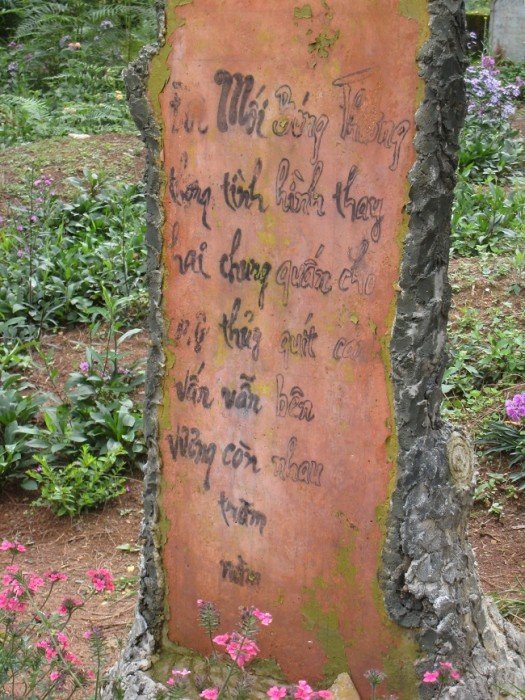 Mới Bóng Thương
tình hình thay
hai chung quấn cho
thủy quít
vấn vẫn bên
vững còn nhau
trăm
năm